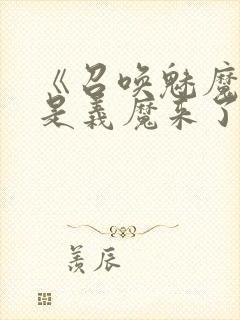 《召唤魅魔
是義魔来了
羡辰